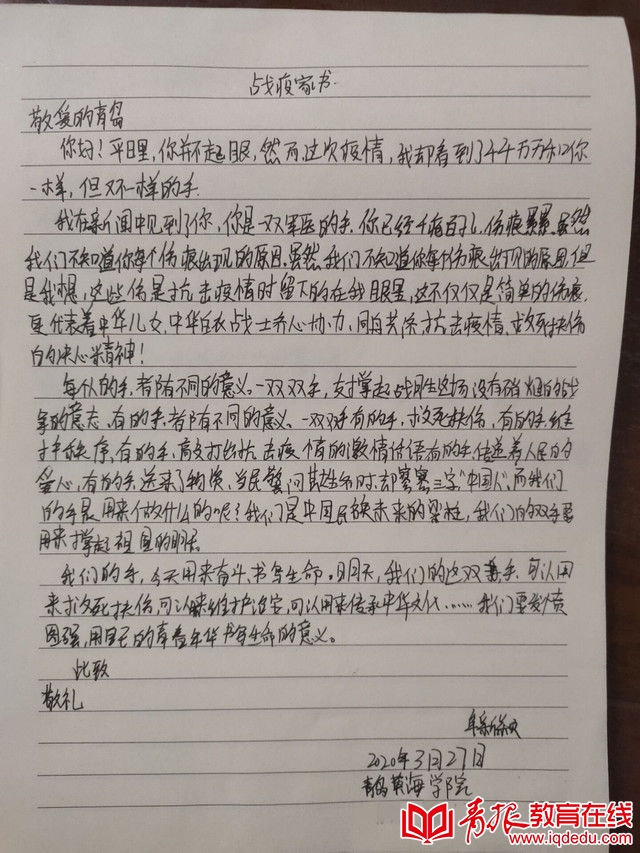 战疫家书
敬爱的青岛
你好！平日里，你并不起眼，然而这次疫情，我却看到了千千万万和你
一样，但又不一样的手。
我在新闻中见到了你，你是一双军医的手，你已经千疮百孔，伤痕累累，虽然
我们不知道你每个伤痕出现的原因，虽然我们不知道你每个伤痕出现的原因，但
是我想，这些伤是抗击疫情时留下的在我眼里，这不仅仅是简单的伤痕，
更代表着中华儿女、中华白衣战士齐心协力、同舟共济抗击疫情、救死扶伤
的决心和精神！
每个人的手，都有不同的意义。一双双手，支撑起战胜这场没有硝烟的战
争的意志，有的手，都有不同的意义。一双双手有的手，救死扶伤，有的手维
护秩序，有的手，敲打出抗击疫情的激情话语有的手传递着人民的
爱心，有的手，送来了物资，当民警问其姓名时，却寥寥三字“中国人”，而我们
的手是用来做什么的呢？我们是中国民族未来的梁柱，我们的双手要
用来撑起祖国的明天
我们的手，今天用来奋斗、书写生命。明天，我们的这双手，可以用
来救死扶伤，可以用来维护治安，可以用来传承中华文化……我们要发愤
图强，用自己的青春年华书写生命的意义。
此致
敬礼
2020年3月27日
青岛黄海学院
青报教育在线
www.iqdedu.com